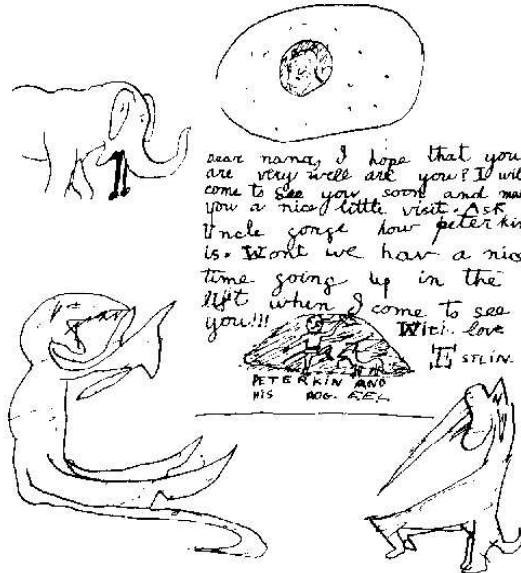 Dear nana, I hope that you
are very well are you? I wil
come to see you soon and ma
you a nice little visit. Ask
Uncle gorge how peterkin
is. Wont we hav a nice
time going up in the
lift when I come to see
you!!!
With love
Estlin.
PETERKIN AND
HIS DOG. EEL